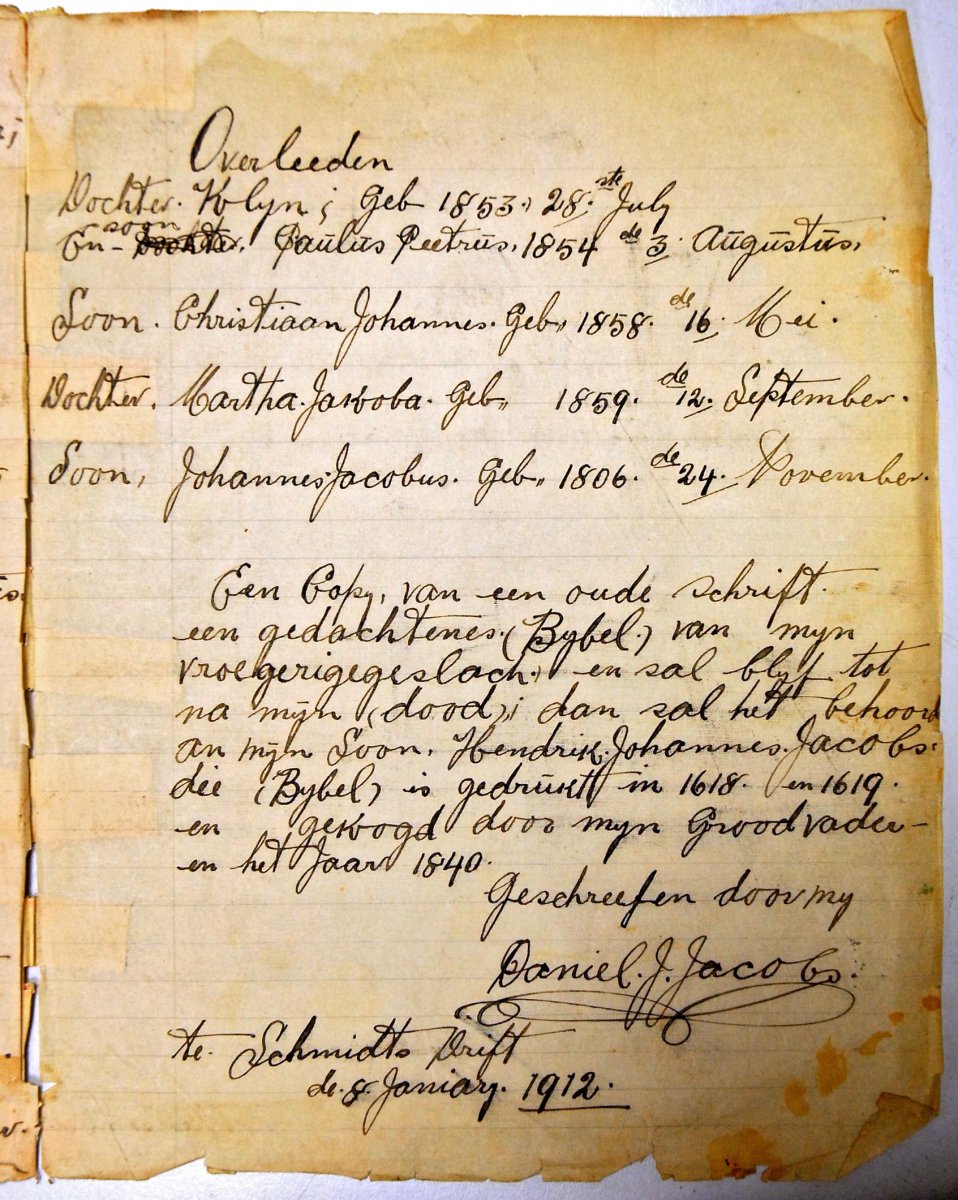 Overleeden
Dochter. Klyn; Geb 1853., 28.ste July
soon
En - Dochter. Paulus Peetrus. 1854 de 3. Augustus.
Soon. Christiaan Johannes. Geb,, 1858. de 16. Mei.
Dochter. Martha. Jakoba. Geb,, 1859. de 12. September.
Soon, Johannes Jacobus. Geb,, 1806. de 24. November.
Een Copy, van een oude schrift.
een gedachtenes. (Bybel.) van myn
vroegerigegeslach.) en sal blyf tot
na mijn (dood), dan sal het behoord
an mijn Soon. Hendrik. Johannes. Jacobs.
die (Bybel) is gedrukt in 1618. en 1619.
en gekogd door myn Grood vader -
en het Jaar 1840.
Geschreefen door my
Daniel. J. Jacobs.
te. Schmidts Drift
de. 8. Janiary. 1912.